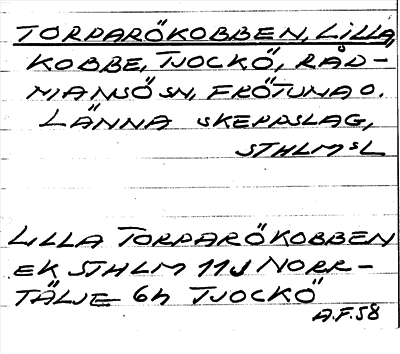 TORPARÖKOBBEN, LILLA,
KOBBE, TJOCKÖ, RÅD-
MANSÖ SN, FRÖTUNA O.
LÄNNA SKEPPSLAG,
STHLMSL
LILLA TORPARÖKOBBEN
EK STHLM 11J NORR-
TÄLJE 6h TJOCKÖ
A.F.58